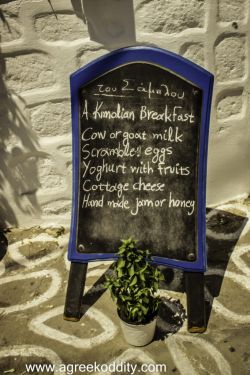 του Σάμπλου
A Kimolian Breakfast
Cow or goat milk
Scrambled eggs
Yoghurt with fruits
Cottage cheese
Hand made jam or honey
www.agreekoddity.com